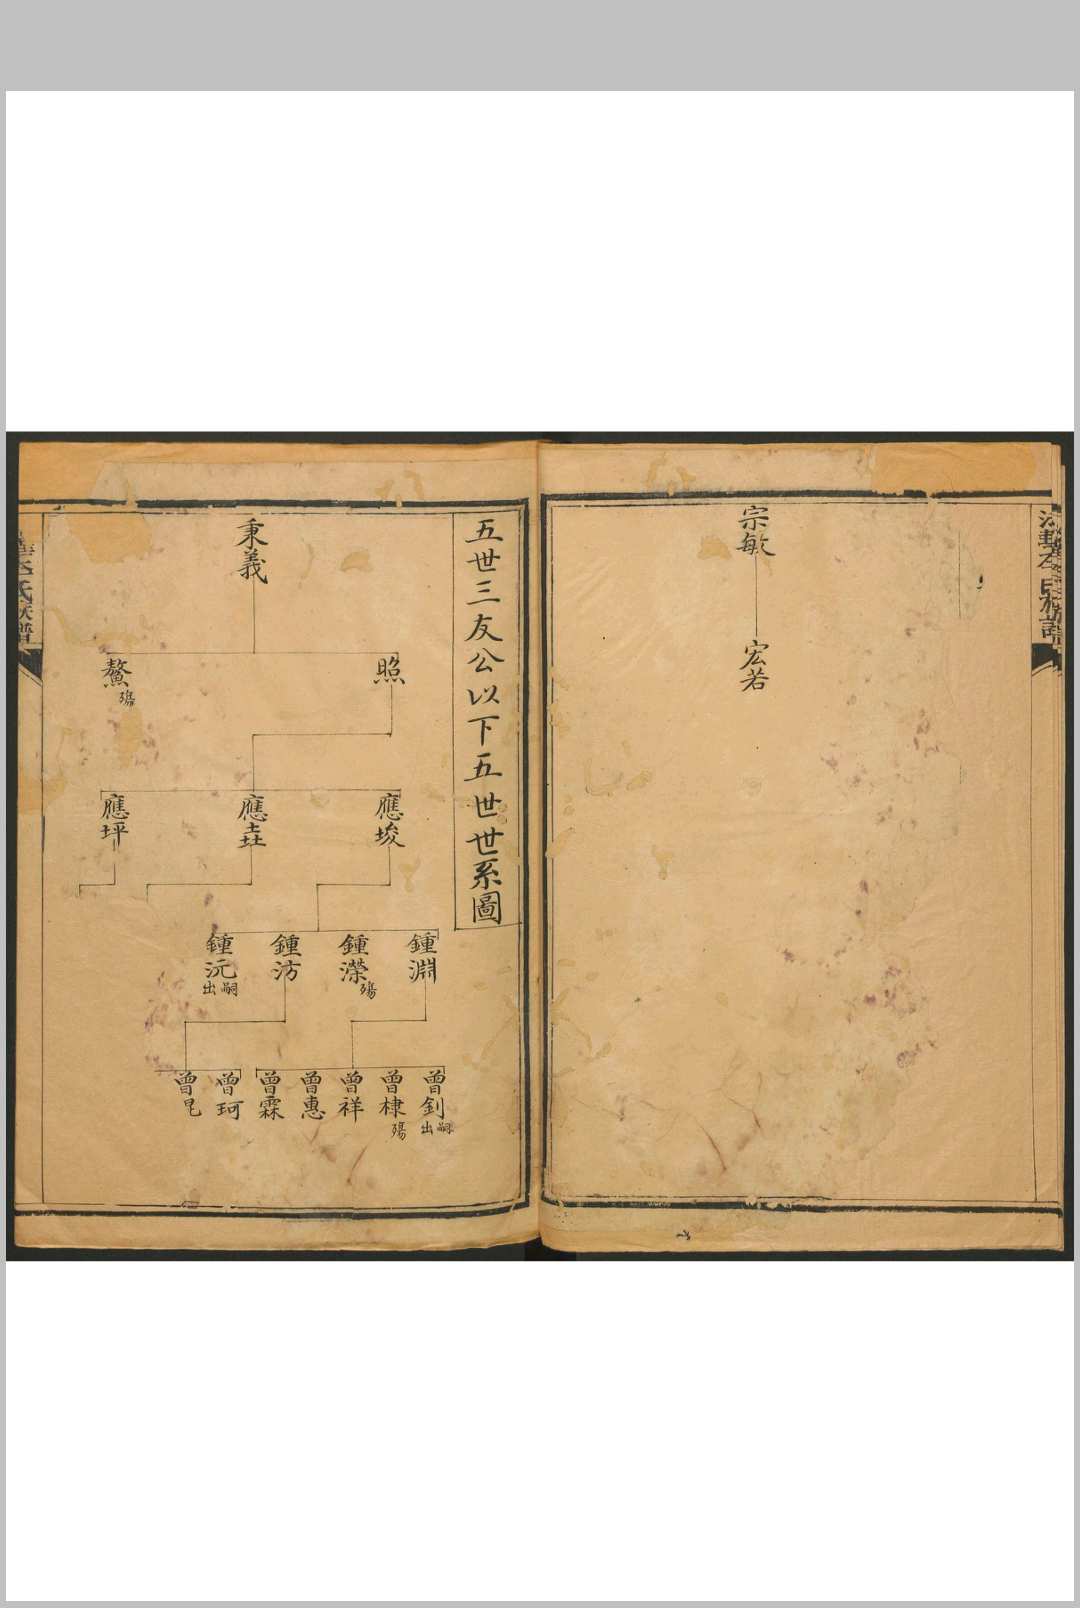 宗敏
宏若
五世三友公以下五世世系圖
秉義
照
鰲殤
應埈
應壵
應坪
鍾淵
鍾濚殤
鍾汸
鍾沅出嗣
曾釗出嗣
曾棣殤
曾祥
曾惠
曾霖
曾珂
曾昆
氏族譜